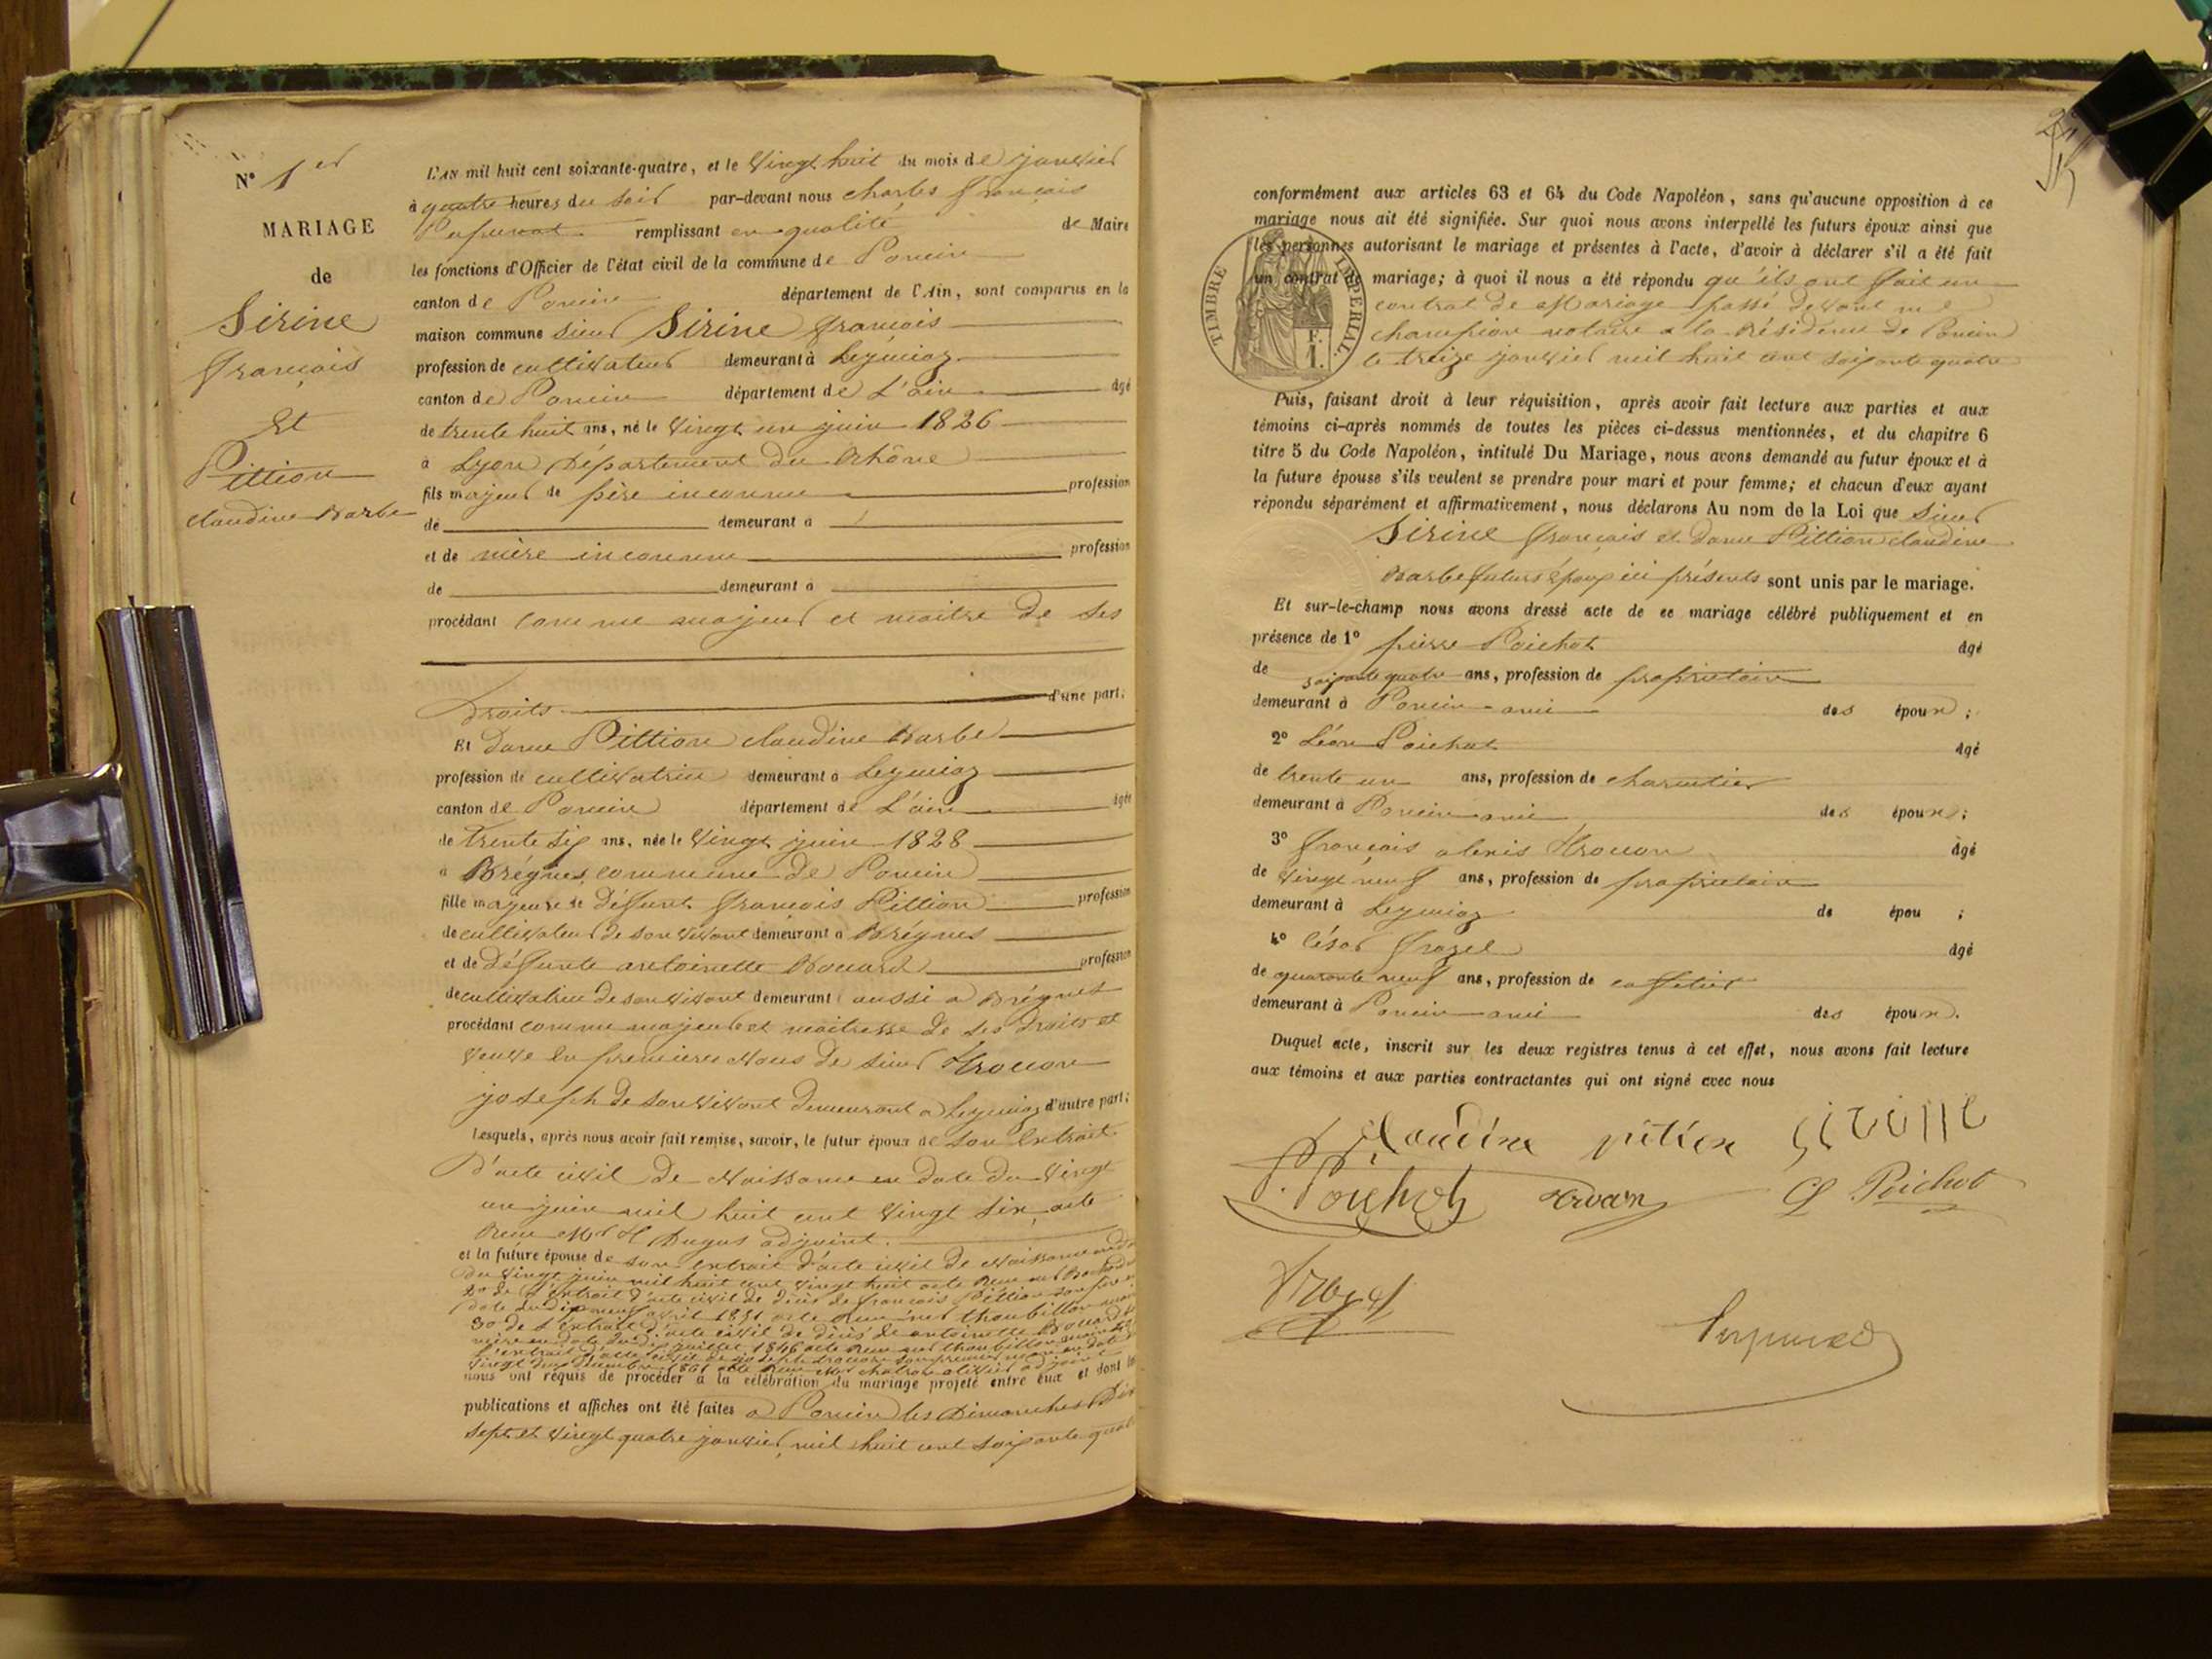 N° 1er
MARIAGE
de
Sirine
François
Et
Pittion
claudine Barbe
L'AN mil huit cent soixante-quatre, et le Vingt huit du mois de janvier
à quatre heures du soir par-devant nous charles françois
remplissant en qualité de Maire
les fonctions d'Officier de l'état civil de la commune de Poncin
canton de Poncin département de l'Ain, sont comparus en la
maison commune sieur Sirine françois
profession de cultivateur demeurant à Leymiaz
canton de Poncin département de L'ain âgé
de trente huit ans, né le Vingt un juin 1826
à Lyon Département du Rhône
fils majeur de père inconnu profession
de demeurant à
et de mère inconnue profession
de demeurant à
procédant comme majeur et maitre de ses
droits d'une part;
Et dame Pittion claudine Barbe
profession de cultivatrice demeurant à Leymiaz
canton de Poncin département de L'ain âgée
de trente six ans, née le Vingt juin 1828
à Brégnes commune de Poncin
fille majeure de défunt françois Pittion profession
de cultivateur de son vivant demeurant à Brégnes
et de défunte antoinette Bouard profession
de cultivatrice de son vivant demeurant aussi a Brégnes
procédant comme majeure et maitresse de ses droits et
veuve en premieres Noces de sieur Drouon
joseph de son vivant demeurant a Leymiaz d'autre part;
Lesquels, après nous avoir fait remise, savoir, le futur époux de son Extrait
d'acte civil de Naissance en date du Vingt
un juin mil huit cent vingt six, acte
Reçu Mr Dugas adjoint.
et la future épouse de son Extrait d'acte civil de Naissance en date
du Vingt juin mil huit cent vingt huit acte Reçu
2o de l'extrait d'acte civil de décès de françois Pittion son père en
date du dix neuf avril 1851 acte Reçu Mr thoubillon
3o de l'extrait d'acte civil de décès de antoinette Bouard
mère en date du dix juillet 1846 acte Reçu Mr thoubillon
l'extrait d'acte civil de joseph drouon son premier mari en date
vingt deux 1861 acte Reçu Mr adjoint
nous ont requis de procéder à la célébration du mariage projeté entre eux et dont les
publications et affiches ont été faites a Poncin les Dimanches Dix
sept et Vingt quatre janvier mil huit cent soixante quatre
conformément aux articles 63 et 64 du Code Napoléon, sans qu'aucune opposition à ce
mariage nous ait été signifiée. Sur quoi nous avons interpellé les futurs époux ainsi que
les personnes autorisant le mariage et présentes à l'acte, d'avoir à déclarer s'il a été fait
un contrat de mariage; à quoi il nous a été répondu qu'ils ont fait un
contrat de Mariage passé devant me
champion notaire a la Résidence de Poncin
le treize janvier mil huit cent soixante quatre
TIMBRE IMPERIAL.
F.
1.
Puis, faisant droit à leur réquisition, après avoir fait lecture aux parties et aux
témoins ci-après nommés de toutes les pièces ci-dessus mentionnées, et du chapitre 6
titre 5 du Code Napoléon, intitulé Du Mariage, nous avons demandé au futur époux et à
la future épouse s'ils veulent se prendre pour mari et pour femme; et chacun d'eux ayant
répondu séparément et affirmativement, nous déclarons Au nom de la Loi que sieur
Sirine françois et dame Pittion claudine
Barbe futurs époux ici présents sont unis par le mariage.
Et sur-le-champ nous avons dressé acte de ce mariage célébré publiquement et en
présence de 1° pierre Poichot âgé
de soixante quatre ans, profession de propriétaire
demeurant à Poncin ami des époux;
2° Léon Poichot âgé
de trente un ans, profession de charcutier
demeurant à Poncin ami des époux;
3° françois alexis Drouon âgé
de vingt neuf ans, profession de propriétaire
demeurant à Leymiaz de épou ;
4° César frazel âgé
de quarante neuf ans, profession de caffetier
demeurant à Poncin ami des époux.
Duquel acte, inscrit sur les deux registres tenus à cet effet, nous avons fait lecture
aux témoins et aux parties contractantes qui ont signé avec nous
Claudine pition Sirine
P. Poichot L Poichot